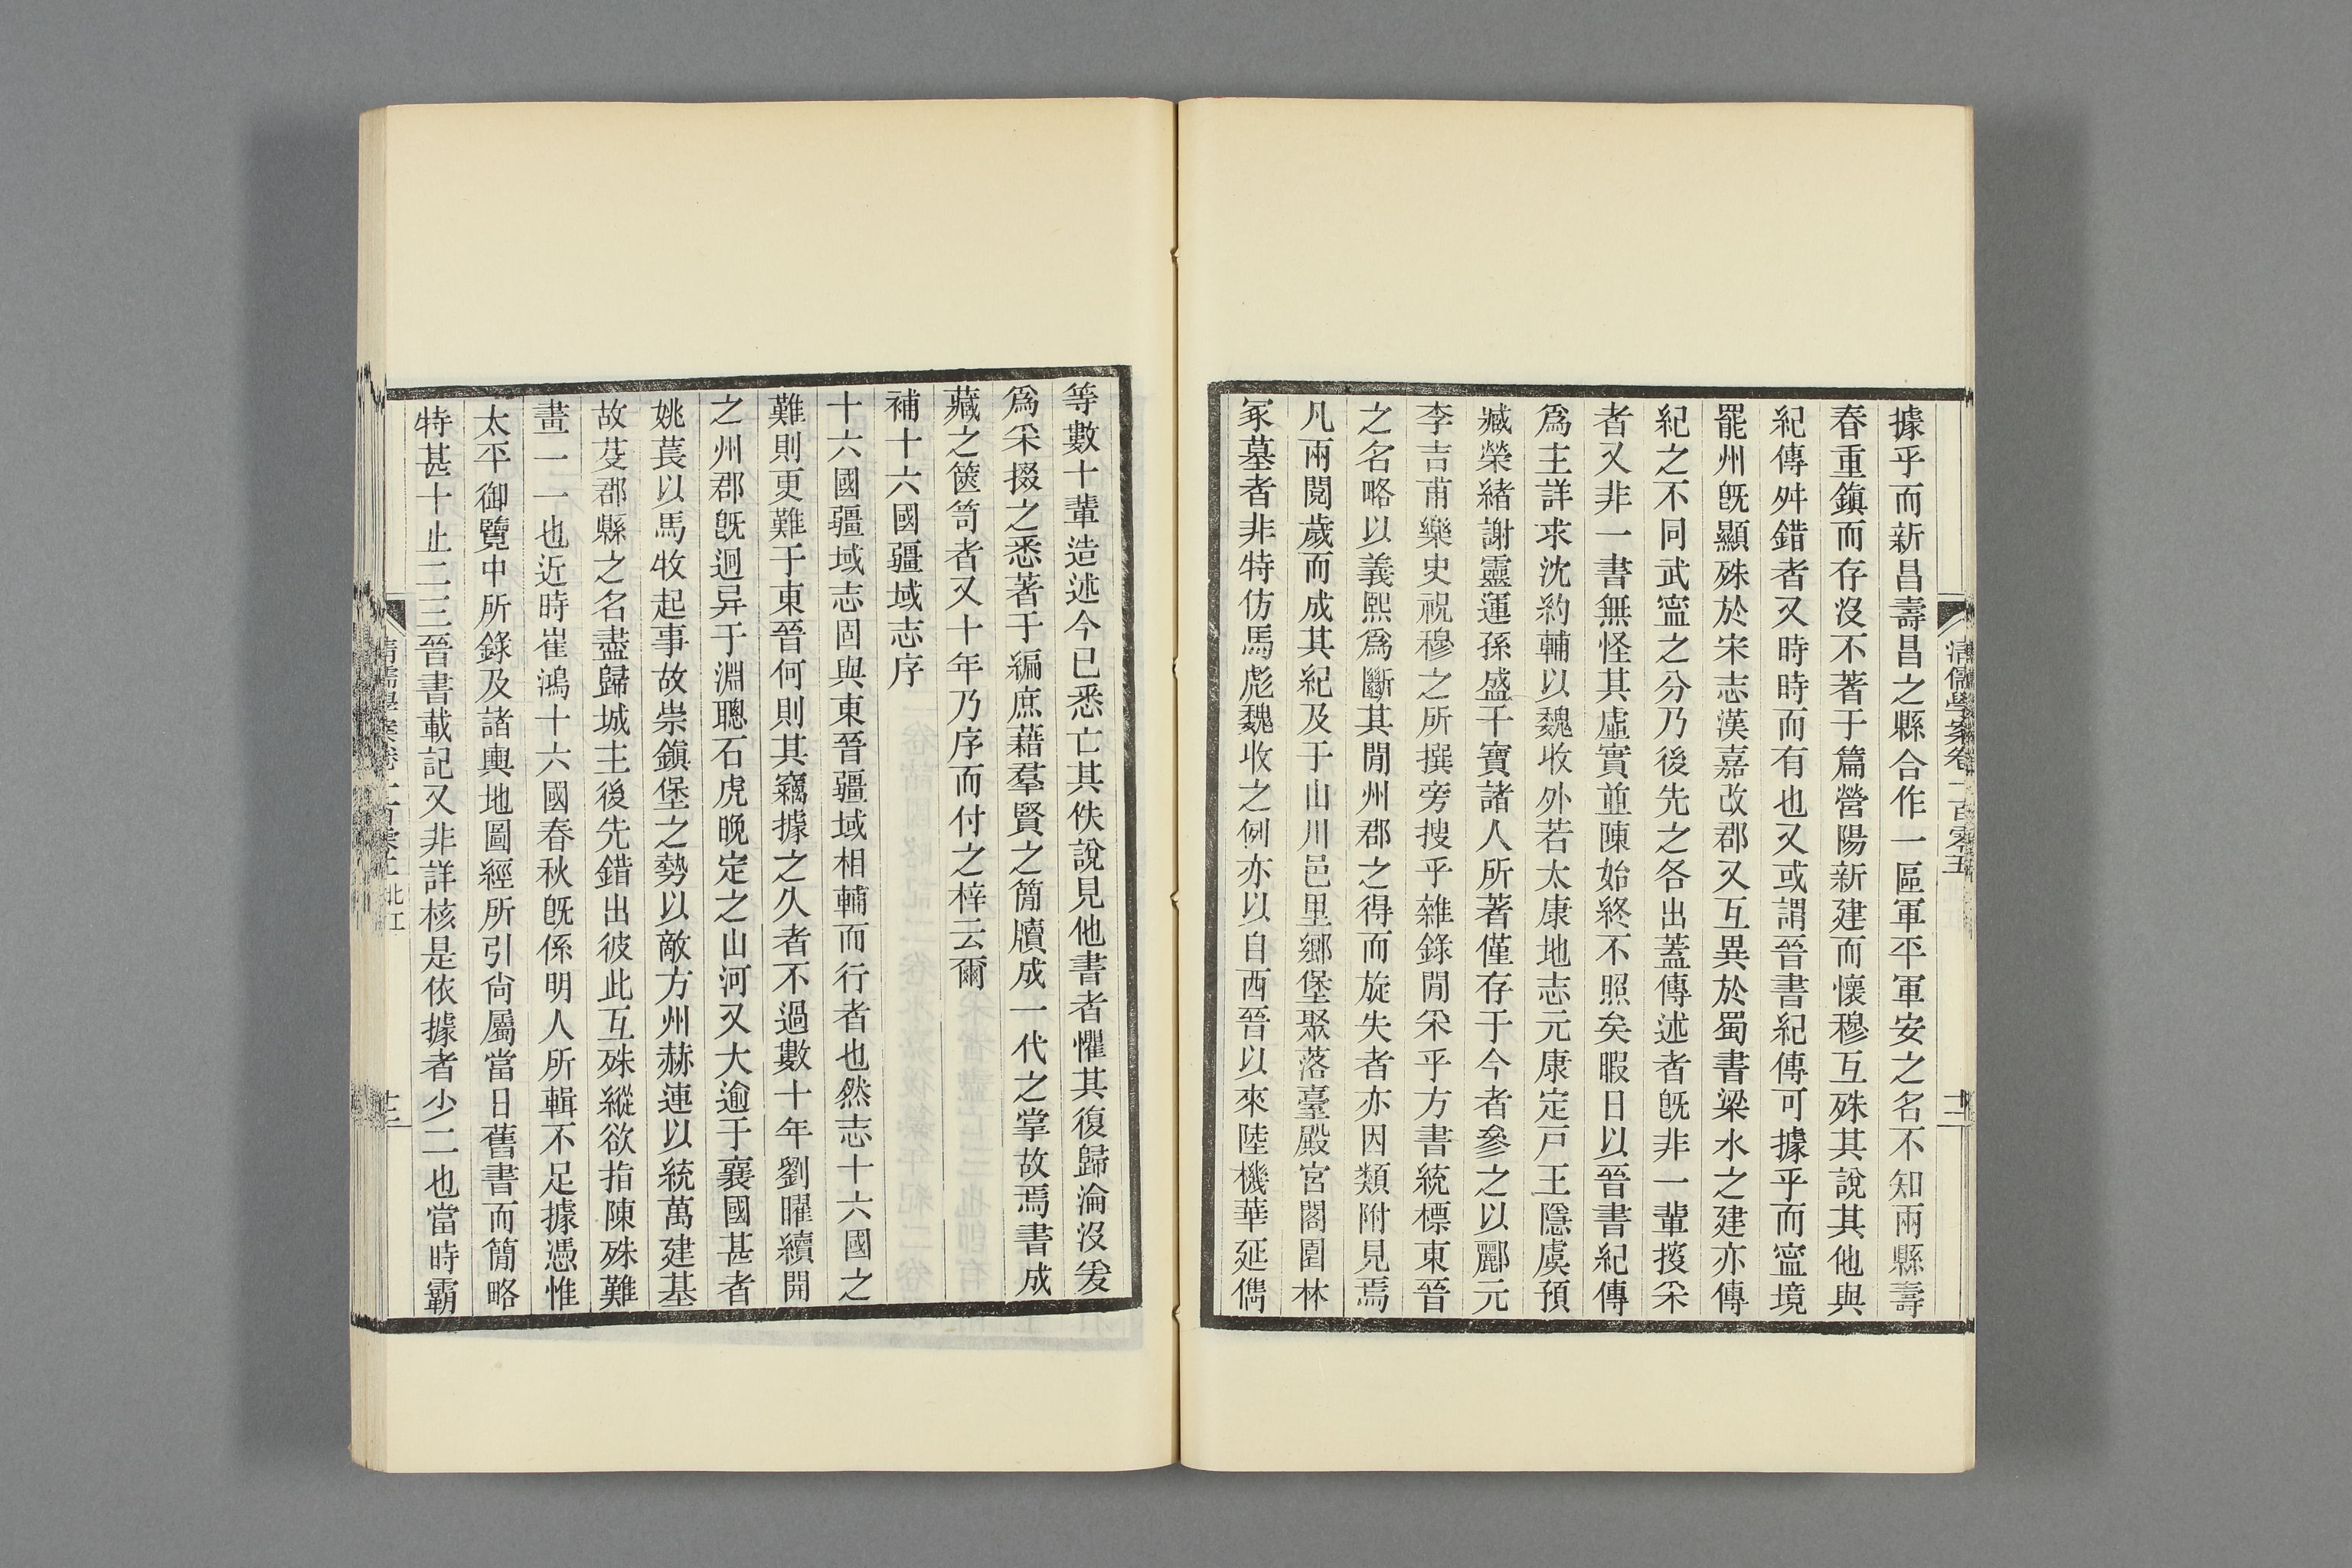 清儒學案卷一百零五
十二
據乎而新昌壽昌之縣合作一區軍平軍安之名不知兩縣壽
春重鎭而存沒不著于篇營陽新建而懷穆互殊其說其他與
紀傳舛錯者又時時而有也又或謂晉書紀傳可據乎而寍境
罷州旣顯殊於宋志漢嘉改郡又互異於蜀書梁水之建亦傳
紀之不同武寍之分乃後先之各出蓋傳述者旣非一輩掞采
者又非一書無怪其虛實並陳始終不照矣暇日以晉書紀傳
爲主詳求沈約輔以魏收外若太康地志元康定戸王隱虞預
臧榮緖謝靈運孫盛干寶諸人所著僅存于今者參之以酈元
李吉甫樂史祝穆之所撰旁搜乎雜錄閒采乎方書統標東晉
之名略以義熙爲斷其閒州郡之得而旋失者亦因類附見焉
凡兩閱歲而成其紀及于山川邑里鄉堡聚落臺殿宮閣園林
冢墓者非特仿馬彪魏收之例亦以自西晉以來陸機華延儁
等數十輩造述今已悉亡其佚說見他書者懼其復歸淪沒爰
爲采掇之悉著于編庶藉羣賢之簡牘成一代之掌故焉書成
藏之篋笥者又十年乃序而付之梓云爾
補十六國疆域志序
十六國疆域志固與東晉疆域相輔而行者也然志十六國之
難則更難于東晉何則其竊據之久者不過數十年劉曜續開
之州郡旣迥异于淵聰石虎晚定之山河又大逾于襄國甚者
姚萇以馬牧起事故崇鎭堡之勢以敵方州赫連以統萬建基
故芟郡縣之名盡歸城主後先錯出彼此互殊縱欲指陳殊難
畫一一也近時崔鴻十六國春秋旣係明人所輯不足據憑惟
太平御覽中所錄及諸輿地圖經所引尙屬當日舊書而簡略
特甚十止二三晉書載記又非詳核是依據者少二也當時霸
清儒學案卷一百零五 北江
十三